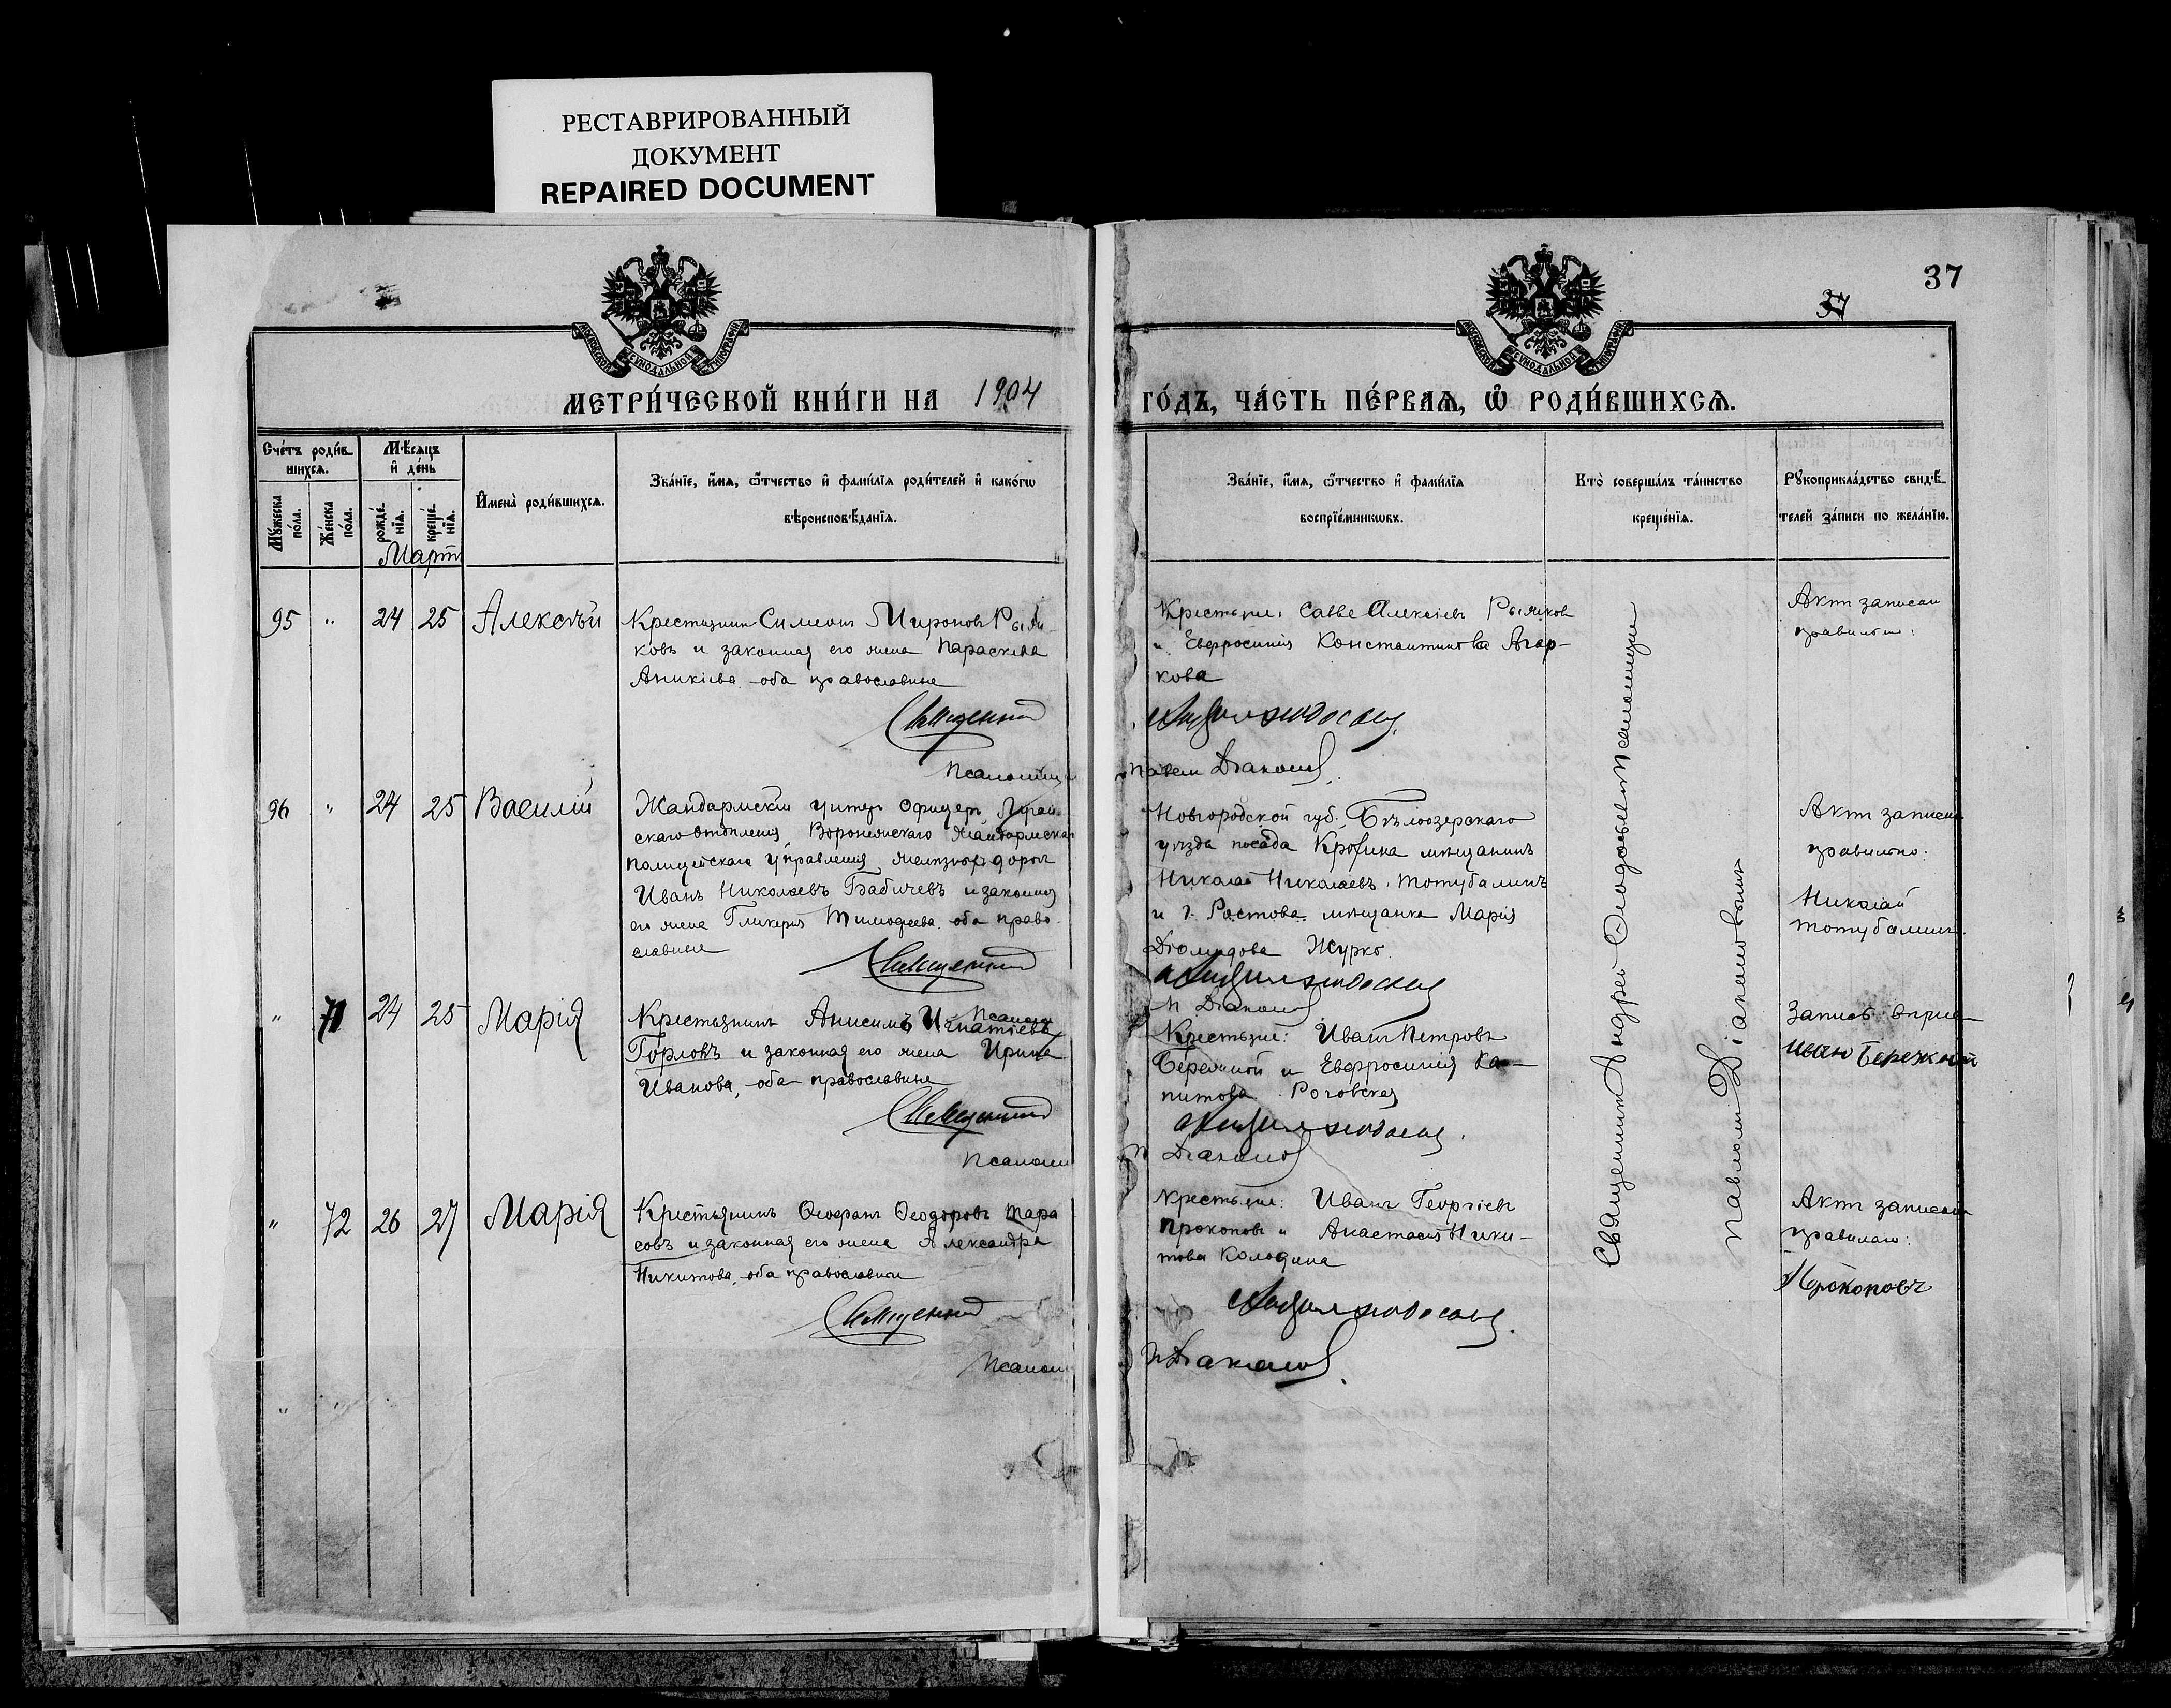 РЕСТАВРИРОВАННЫЙ
ДОКУМЕНТ
REPAIRED DOCUMENT
37
37
МЕТРИ́ЧЕСКОЙ КНИ́ГИ НА 1904 ГО́ДЪ, ЧА́СТЬ ПЕ́РВАЯ, Ѡ РОДИ́ВШИХСЯ.
Сче́тъ роди́в
шихся.
Му́жеска по́ла.
Же́нска по́ла.
Мѣ́сяцъ
и де́нь
рожде́нїя.
креще́нїя.
Мартъ
И҆мена̀ роди́вшихся.
Зва́нїе, и҆́мя, ѻ҆́тчество и҆ фами́лїя роди́телей и҆ како́гѡ
вѣроисповѣ́данїя.
Зва́нїе, и҆́мя, ѻ҆́тчество и҆ фами́лїя
воспрїе́мникѡвъ.
Кто̀ соверша́лъ та́инство
креще́нїя.
Рꙋкоприкла́дство свидѣ́-
телей за́писи по жела́нїю.
95 " 24 25 Алексѣй
Крестьянинъ Симеонъ Мироновъ Рыж
ковъ и законная его жена Параскева
Аникіева оба православные
Псаломщ
Крестьяне: Савве Алексіевъ Рыжков
и Евфросинія Константинова Агар-
кова
Павелъ Діаконов
Акт записан
правильно:
96 " 24 25 Василій
Жандармскій унтеръ офицеръ
скаго отдѣленія, Воронежскаго Жандармска
полицейскаго управленія желѣзной дорогъ
Иванъ Николаевъ Бабичевъ и законная
его жена Гликерія Тимофеева оба право-
славные
Псаломщ
Новгородской губ. Бѣлоозерскаго
уѣзда посада Крохина мѣщанинъ
Николай Николаевъ Тотубалинъ
и г. Ростова мѣщанка Марія
Діомидова Журко.
П Діаконов
Акт записан
правильно:
Николай
Тотубалинъ
" 71 24 25 Марія
Крестьянинъ Анисимъ Игнатіевъ
Горловъ и законная его жена Ирина
Иванова, оба православные
Псаломщ
Крестьяне: Иванъ Петровъ
Бережной и Евфросинія Ка-
питова Роговская
П Діаконов
Запись
Иван Бережной
" 72 26 27 Марія
Крестьянинъ Ѳеофанъ Ѳеодоровъ Тара
совъ и законная его жена Александра
Никитова, оба православные
Псалом
Крестьяне: Иванъ Георгіевъ
Прокоповъ и Анастасія Ники-
това Колодина
П Діаконов
Акт записан
правильно:
Прокоповъ
Священникъ Андрей Ѳеодосьевъ Псаломщик
Павломъ Діаконовымъ